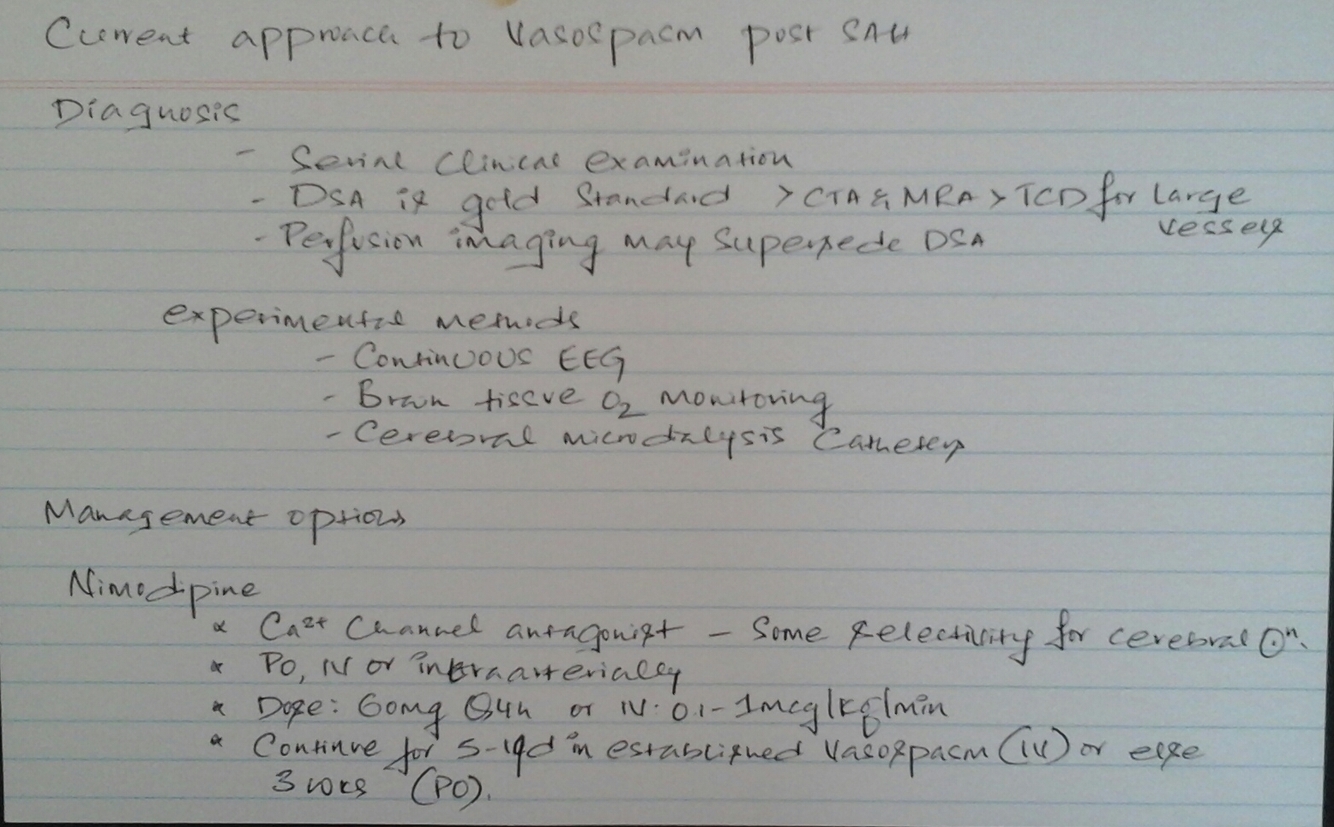 Current approach to Vasospasm post SAH
Diagnosis
- Serial Clinical examination
- DSA is gold Standard > CTA & MRA > TCD for Large vessels
- Perfusion imaging may Supersede DSA
experimental methods
- Continuous EEG
- Brain tissue O2 Monitoring
- Cerebral microdialysis Catheters
Management options
Nimodipine
* Ca2+ Channel antagonist - Some selectivity for cerebral
* PO, IV or intraarterially
* Dose: 60mg Q4h or IV: 0.1-1mcg/kg/min
* Continue for 5-14d in established Vasospasm (IV) or else
3 wks (PO).